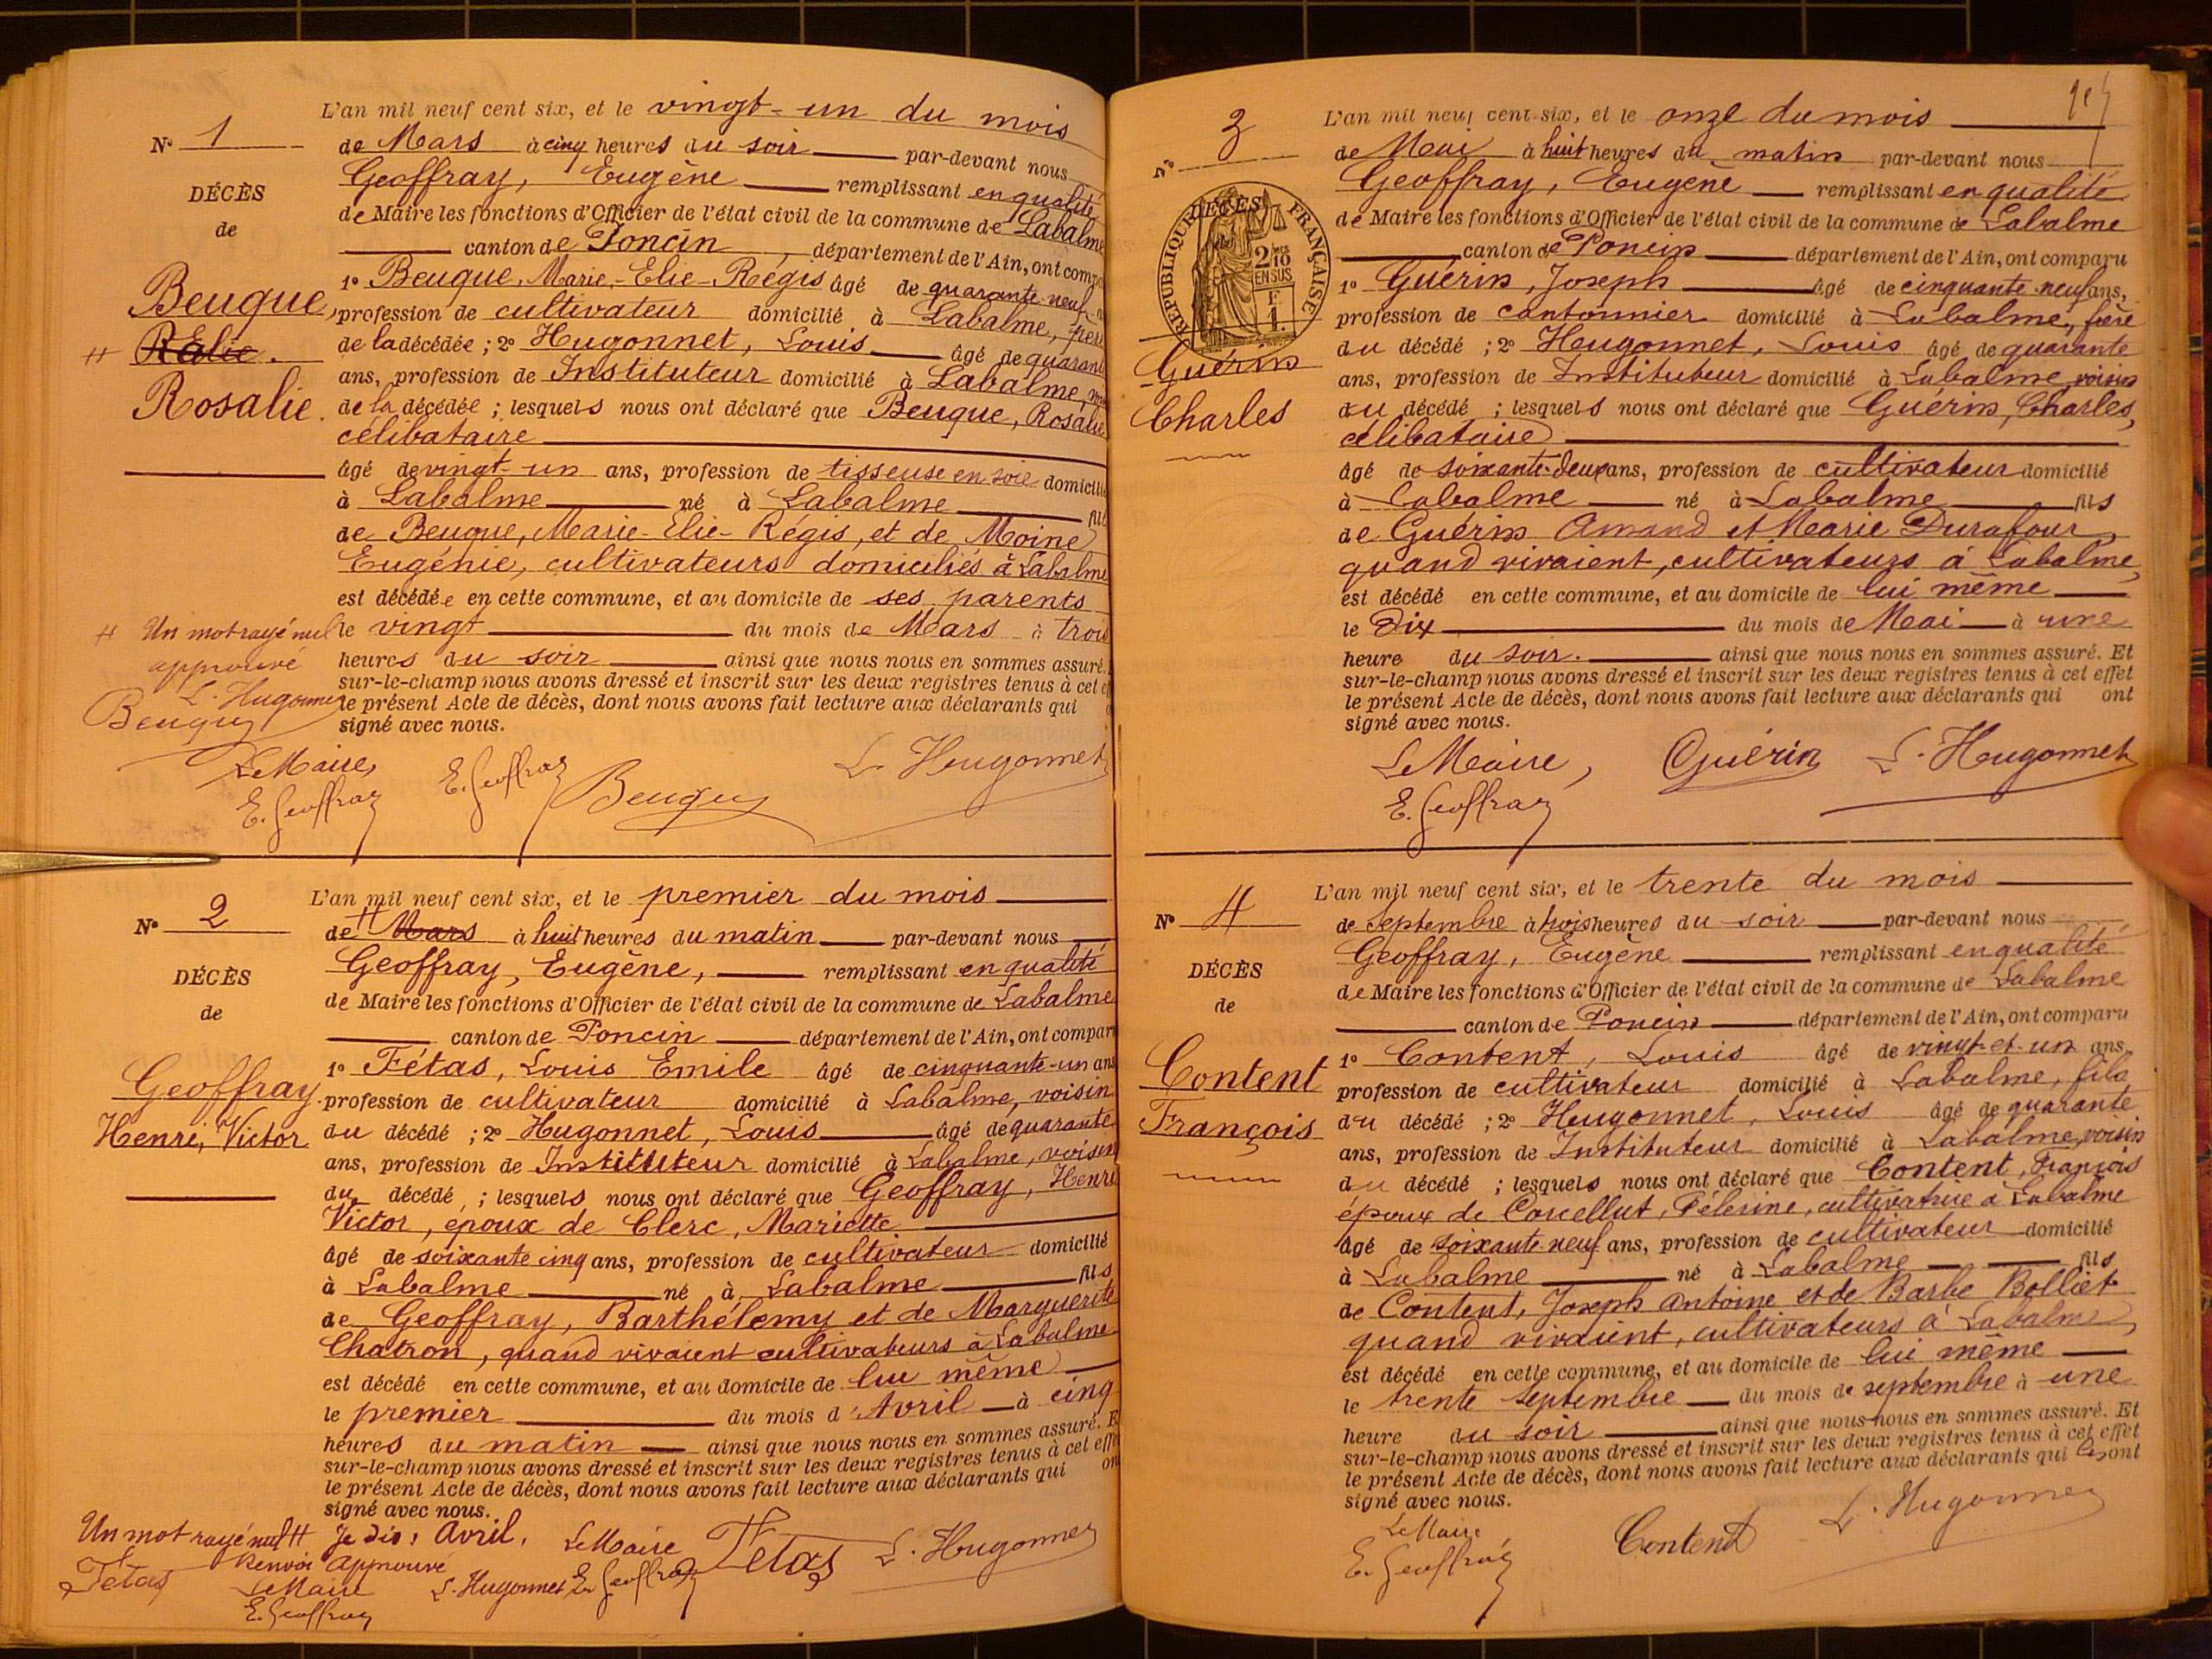 L'an mil neuf cent six, et le vingt-un du mois
N° 1
de Mars à cinq heures du soir par-devant nous
Geoffray, Eugène remplissant en qualité
DÉCÈS
de Maire les fonctions d'Officier de l'état civil de la commune de Labalme
de
canton de Poncin, département de l'Ain, ont compa
1° Beuque, Marie-Elie-Régis âgé de quarante-neuf
Beuque,
profession de cultivateur domicilié à Labalme, père
# RElie.
de la décédée ; 2° Hugonnet, Louis âgé de quarante
ans, profession de Instituteur domicilié à Labalme,
Rosalie.
de la décédée ; lesquels nous ont déclaré que Beuque, Rosalie
célibataire
âgé de vingt-un ans, profession de tisseuse en soie domicilié
à Labalme né à Labalme fil
de Beuque, Marie-Elie-Régis, et de Moine
Eugénie, cultivateurs domiciliés à Labalme
est décédée en cette commune, et au domicile de ses parents
le vingt du mois de Mars à trois
heures du soir ainsi que nous nous en sommes assuré.
sur-le-champ nous avons dressé et inscrit sur les deux registres tenus à cet ef
le présent Acte de décès, dont nous avons fait lecture aux déclarants qui
signé avec nous.
# Un mot rayé nul
approuvé
L. Hugonnet
Beuque
Le Maire, E. Geoffray Beuque L. Hugonnet
E. Geoffray
L'an mil neuf cent six, et le premier du mois
N° 2
de # Mars à huit heures du matin par-devant nous
Geoffray, Eugène, remplissant en qualité
DÉCÈS
de Maire les fonctions d'Officier de l'état civil de la commune de Labalme
de
canton de Poncin département de l'Ain, ont comparu
1° Fétas, Louis Emile âgé de cinquante-un ans
Geoffray
profession de cultivateur domicilié à Labalme, voisin
Henri, Victor
du décédé ; 2° Hugonnet, Louis âgé de quarante
ans, profession de Instituteur domicilié à Labalme, voisin
du décédé ; lesquels nous ont déclaré que Geoffray, Henri
Victor, époux de Clerc, Mariette
âgé de soixante cinq ans, profession de cultivateur domicilié
à Labalme né à Labalme fils
de Geoffray, Barthélemy et de Marguerite
Chatron, quand vivaient cultivateurs à Labalme
est décédé en cette commune, et au domicile de lui même
le premier du mois d'Avril à cinq
heures du matin ainsi que nous nous en sommes assuré. E
sur-le-champ nous avons dressé et inscrit sur les deux registres tenus à cet effe
le présent Acte de décès, dont nous avons fait lecture aux déclarants qui on
signé avec nous.
Un mot rayé nul # Je dis : Avril. Le Maire Fétas L. Hugonnet
Renvoi approuvé
Fétas Le Maire L. Hugonnet E. Geoffray
E. Geoffray
L'an mil neuf cent six, et le onze du mois
N° 3
de Mai à huit heures du matin par-devant nous
Geoffray, Eugène remplissant en qualité
DÉCÈS
RÉPUBLIQUE FRANÇAISE
2/10 EN SUS
de Maire les fonctions d'Officier de l'état civil de la commune de Labalme
canton de Poncin département de l'Ain, ont comparu
1° Guérin, Joseph âgé de cinquante-neuf ans,
profession de cantonnier domicilié à Labalme, frère
Guérin
du décédé ; 2° Hugonnet, Louis âgé de quarante
ans, profession de Instituteur domicilié à Labalme, voisin
Charles
du décédé ; lesquels nous ont déclaré que Guérin, Charles,
célibataire
âgé de soixante-deux ans, profession de cultivateur domicilié
à Labalme né à Labalme fils
de Guérin Amand et Marie Durafour,
quand vivaient, cultivateurs à Labalme,
est décédé en cette commune, et au domicile de lui même
le Dix du mois de Mai à une
heure du soir. ainsi que nous nous en sommes assuré. Et
sur-le-champ nous avons dressé et inscrit sur les deux registres tenus à cet effet
le présent Acte de décès, dont nous avons fait lecture aux déclarants qui ont
signé avec nous.
Le Maire, Guérin L. Hugonnet
E. Geoffray
L'an mil neuf cent six, et le trente du mois
N° 4
de Septembre à trois heures du soir par-devant nous
Geoffray, Eugène remplissant en qualité
DÉCÈS
de Maire les fonctions d'Officier de l'état civil de la commune de Labalme
de
canton de Poncin département de l'Ain, ont comparu
1° Content, Louis âgé de vingt-et-un ans,
Content
profession de cultivateur domicilié à Labalme, fils
François
du décédé ; 2° Hugonnet, Louis âgé de quarante
ans, profession de Instituteur domicilié à Labalme, voisin
du décédé ; lesquels nous ont déclaré que Content, François
époux de Corcellut, Pélerine, cultivatrice à Labalme
âgé de soixante-neuf ans, profession de cultivateur domicilié
à Labalme né à Labalme fils
de Content, Joseph Antoine et de Barbe Bolliet
quand vivaient, cultivateurs à Labalme,
est décédé en cette commune, et au domicile de lui même
le trente septembre du mois de septembre à une
heure du soir ainsi que nous nous en sommes assuré. Et
sur-le-champ nous avons dressé et inscrit sur les deux registres tenus à cet effet
le présent Acte de décès, dont nous avons fait lecture aux déclarants qui ont
signé avec nous.
Le Maire Content L. Hugonnet
E. Geoffray